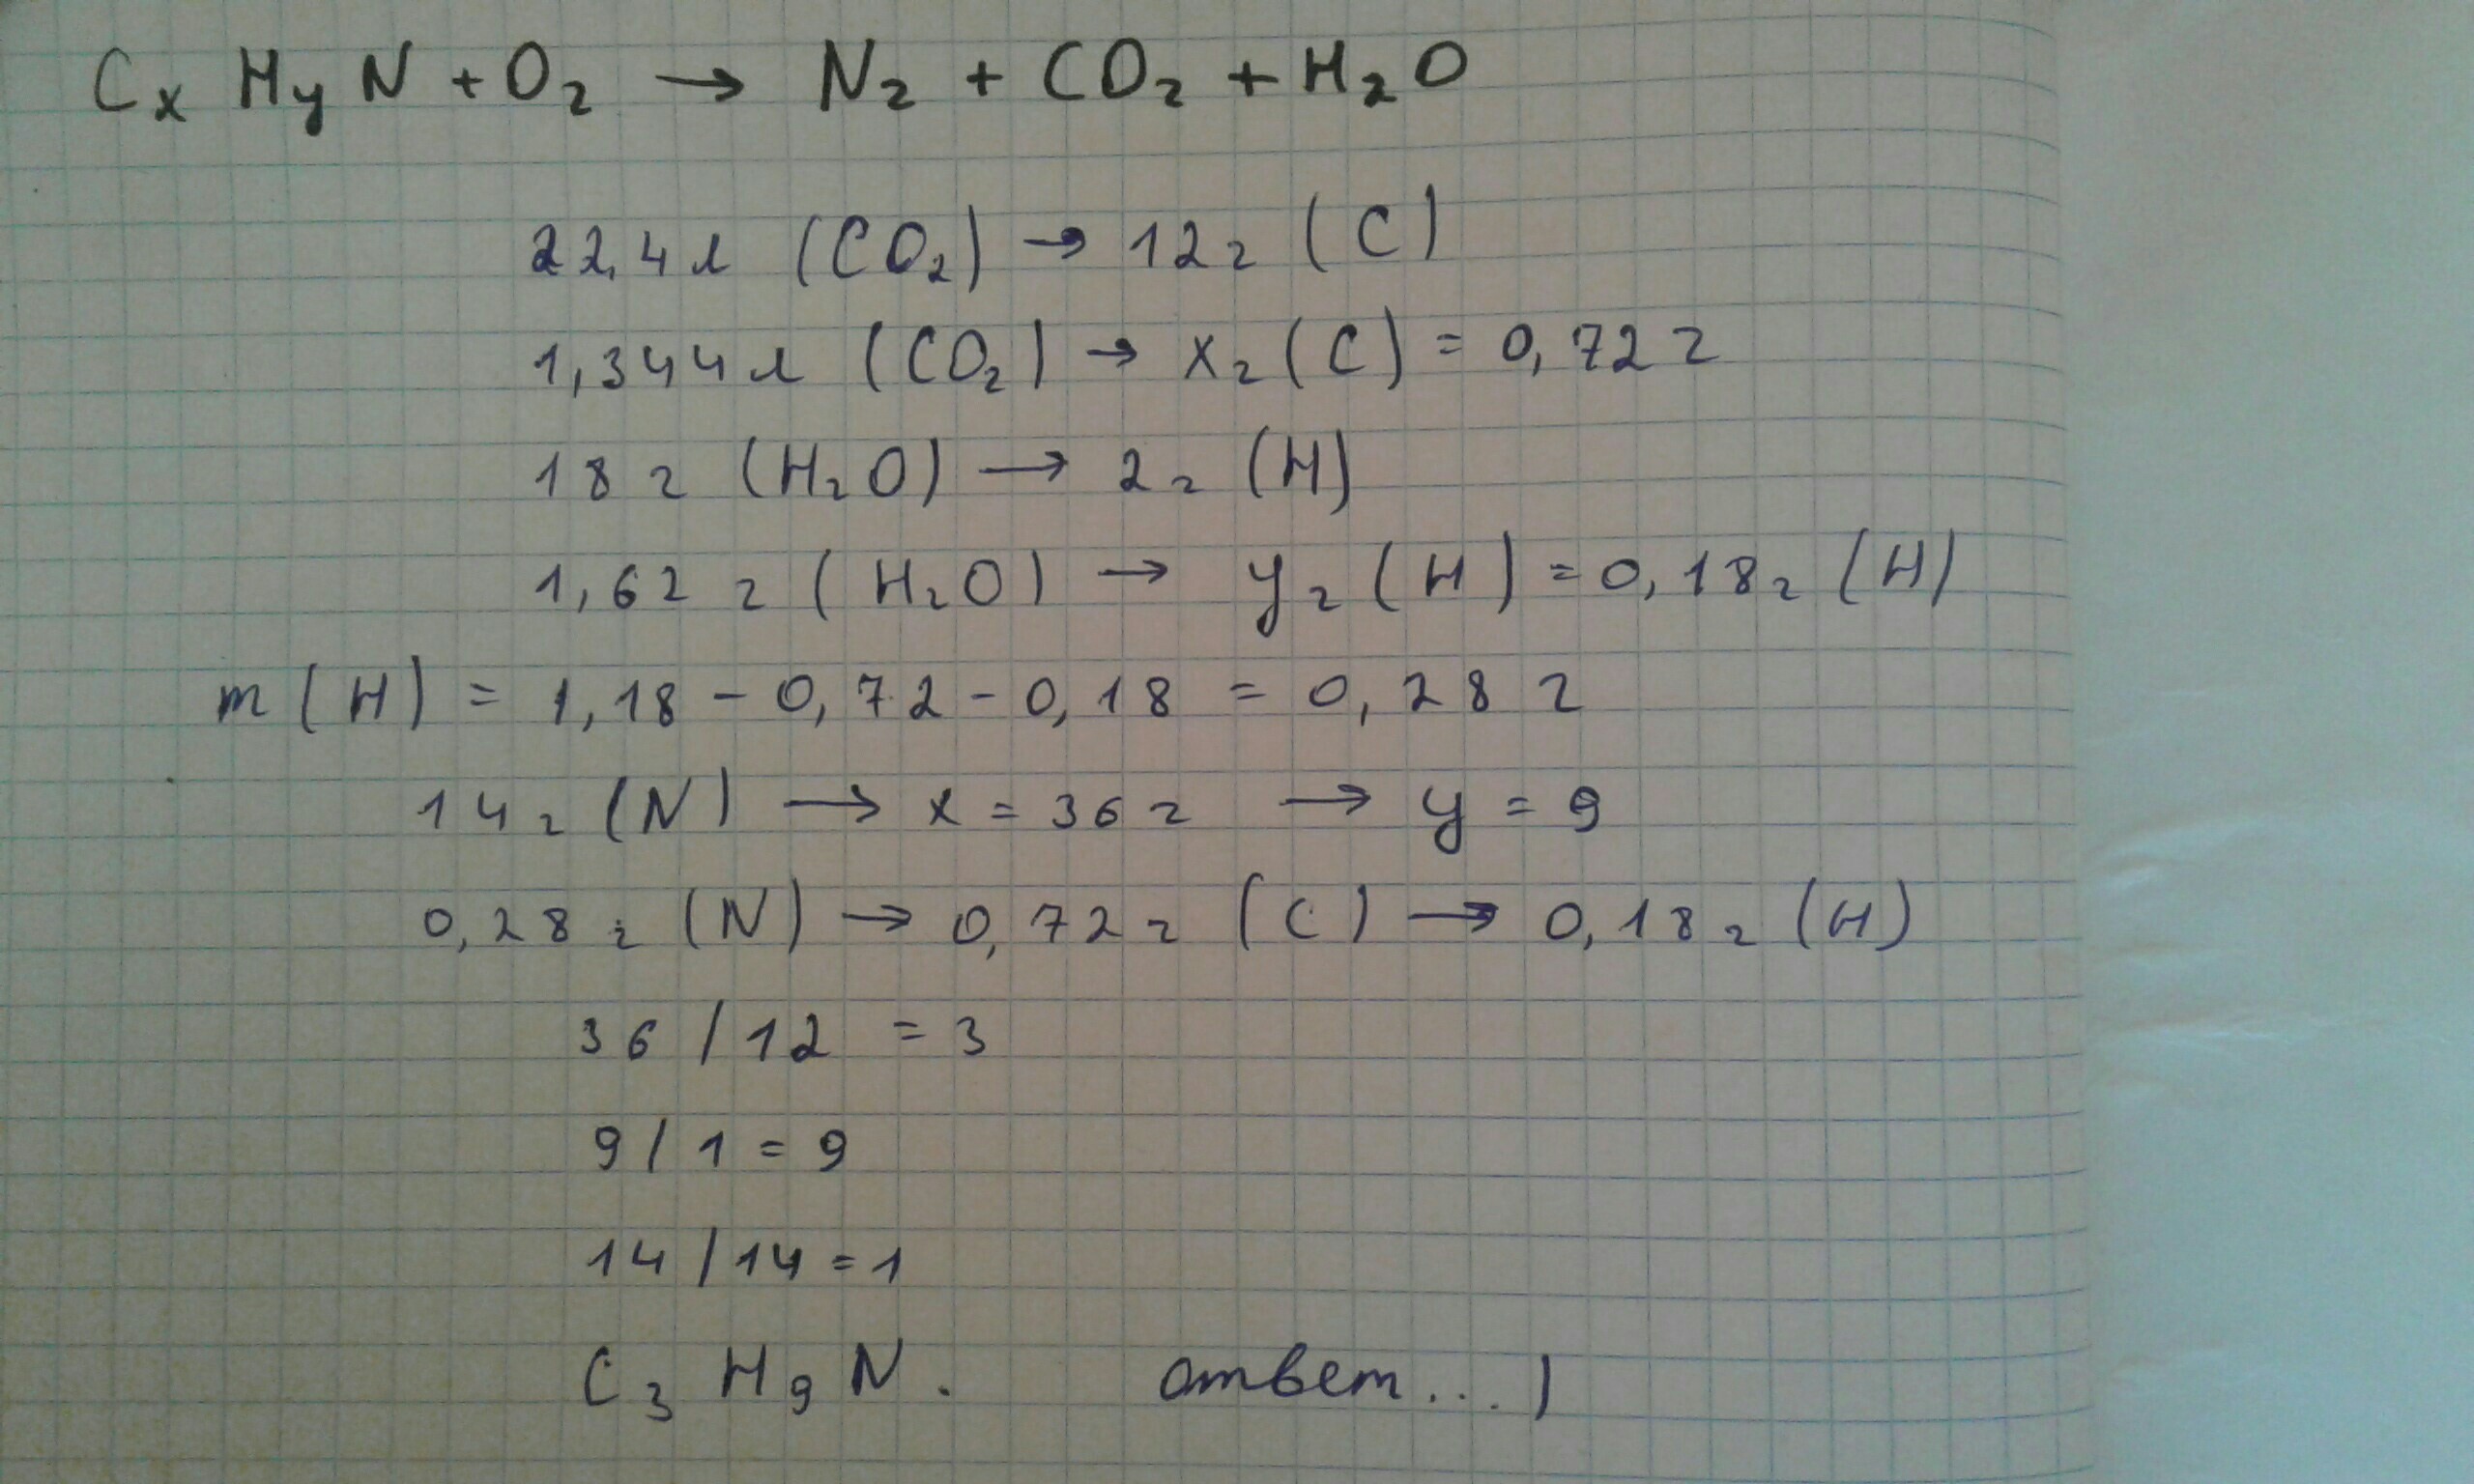 CxHyN + O2 → N2 + CO2 + H2O
22,4 л (CO2) → 12 г (C)
1,344 л (CO2) → x г (C) = 0,72 г
18 г (H2O) → 2 г (H)
1,62 г (H2O) → y г (H) = 0,18 г (H)
m(H) = 1,18 - 0,72 - 0,18 = 0,28 г
14 г (N) → x = 36 г → y = 9
0,28 г (N) → 0,72 г (C) → 0,18 г (H)
36 / 12 = 3
9 / 1 = 9
14 / 14 = 1
C3H9N. ответ...)